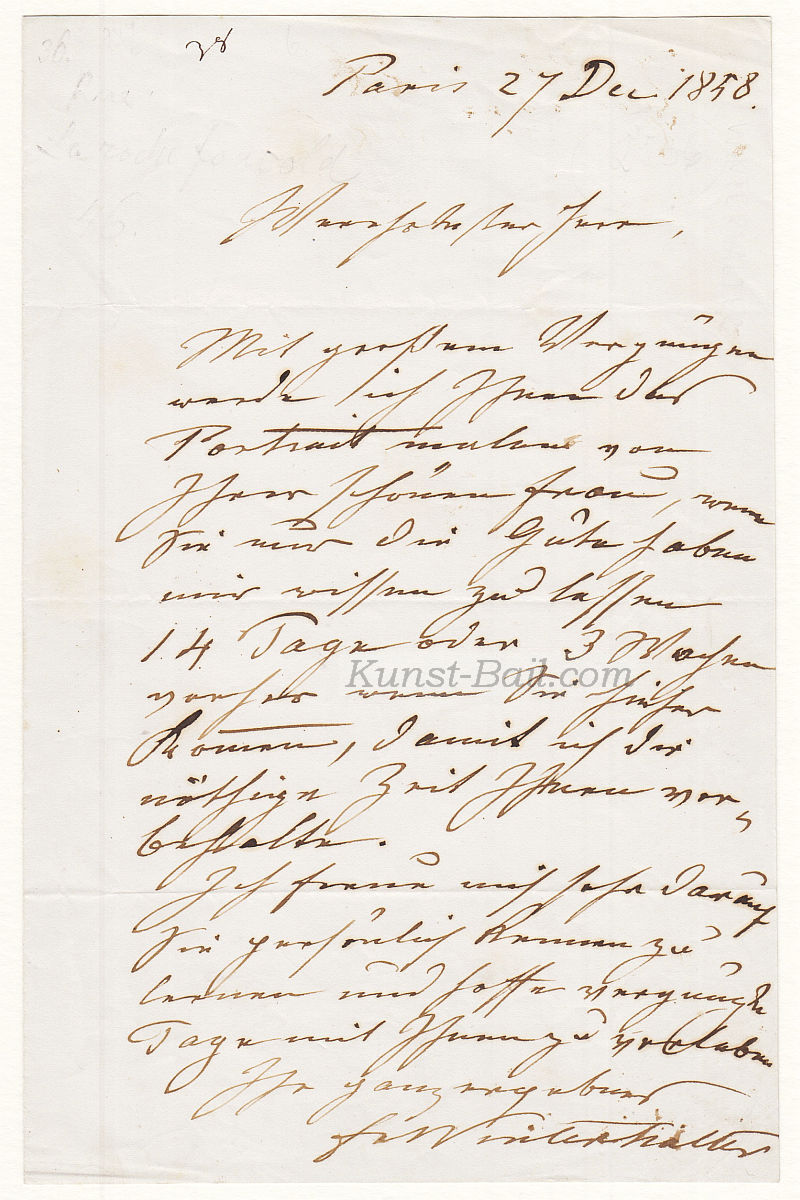 36.
Rue
Larochefoucold
46.
Paris 27 Dec 1858.
Verehrtester Herr,
Mit großem Vergnügen
werde ich Ihnen das
Portrait malen von
Ihrer schönen Frau, wenn
Sie nur die Güte haben
mir wissen zu lassen
14 Tage oder 3 Wochen
Kunst-Bail.com
vorher wenn Sie hieher
komen, damit ich die
nöthige Zeit Ihnen vor-
behalte.
Ich freue mich sehr darauf
Sie persönlich kennen zu
lernen und hoffe vergnügte
Tage mit Ihnen zu verleben
Ihr ganz ergebener
Fr Winterhalter